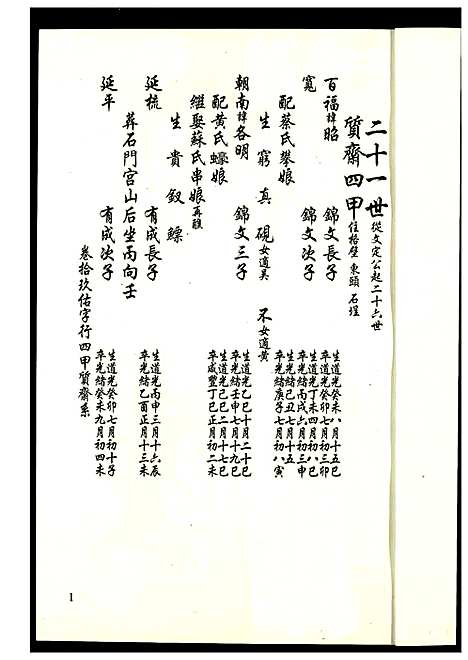 二十一世 從文定公起二十六世
質齋四甲 住格壁 東頭 石埕
百福諱昭 錦文長子 生道光癸未八月十五巳 卒道光癸卯七月初三卯
寬 錦文次子 生道光丁未四月初八巳 卒光緒丙戌六月初三申
配蔡氏攀娘 生光緒己丑七月十五 卒光緒庚子七月初八寅
生 窮 真 硯 女適吳 不 女適黃
朝南諱各明 錦文三子 生道光乙巳十月二十巳 卒光緒壬申七月十九巳
配黃氏蠔娘 生道光己巳二月十七巳 卒咸豐丁巳正月初二未
繼娶蘇氏串娘 再醮
生 貴 釵 鰾
延梳 有成長子 生道光丙申三月十六辰 卒光緒乙酉正月十三未
葬石門宮山后坐丙向壬
延平 有成次子 生道光癸卯七月初十子 卒光緒癸未九月初四未
卷拾玖佑字行四甲質齋系
1